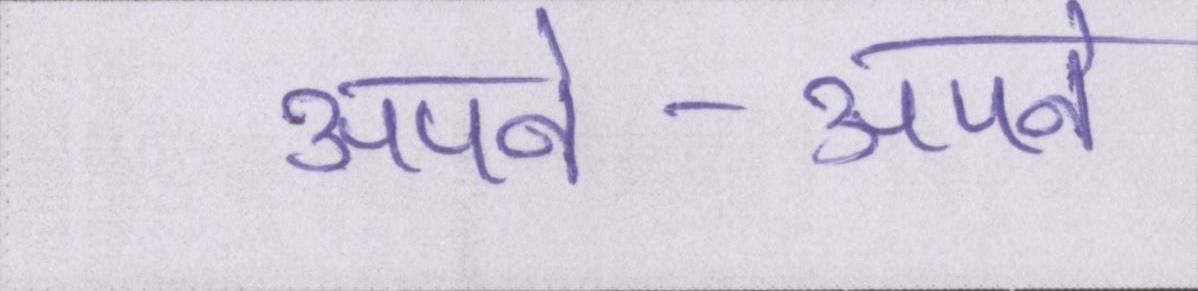 अपने - अपने